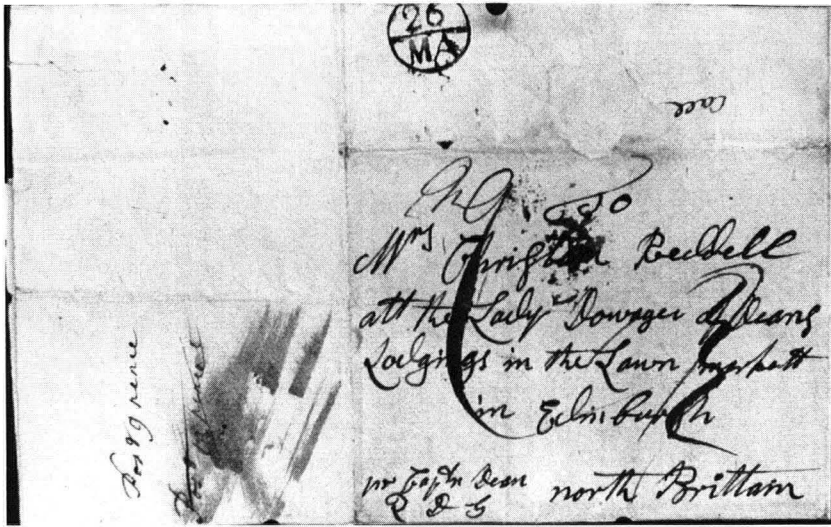 26
MA
To
Mrs Christian Reddell
att the Lady Dowager of Deans
Lodgings in the Lawn markett
in Edinburgh
pr Captn Dean
Q D G
north Brittain
Post 9 pence